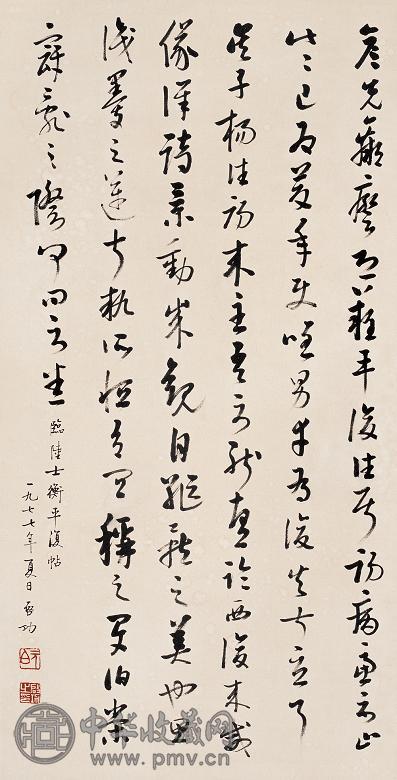 彦先羸瘵恐難平復往屬初病慮不止
此〻已為慶承使唯男幸為復失前憂耳
吳子楊往初来主吾不能盡臨西復来威
儀詳跱舉動成觀自軀體之美也思
識量之邁前執所恒有宜稱之夏伯榮
寇亂之際聞問不悉
臨陸士衡平復帖
一九七七年夏日 启功
中华收藏网
www.pmv.cn